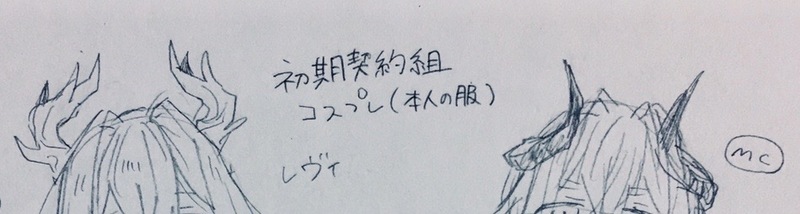 初期契約組
コスプレ(本人の服)
レヴィ
MC